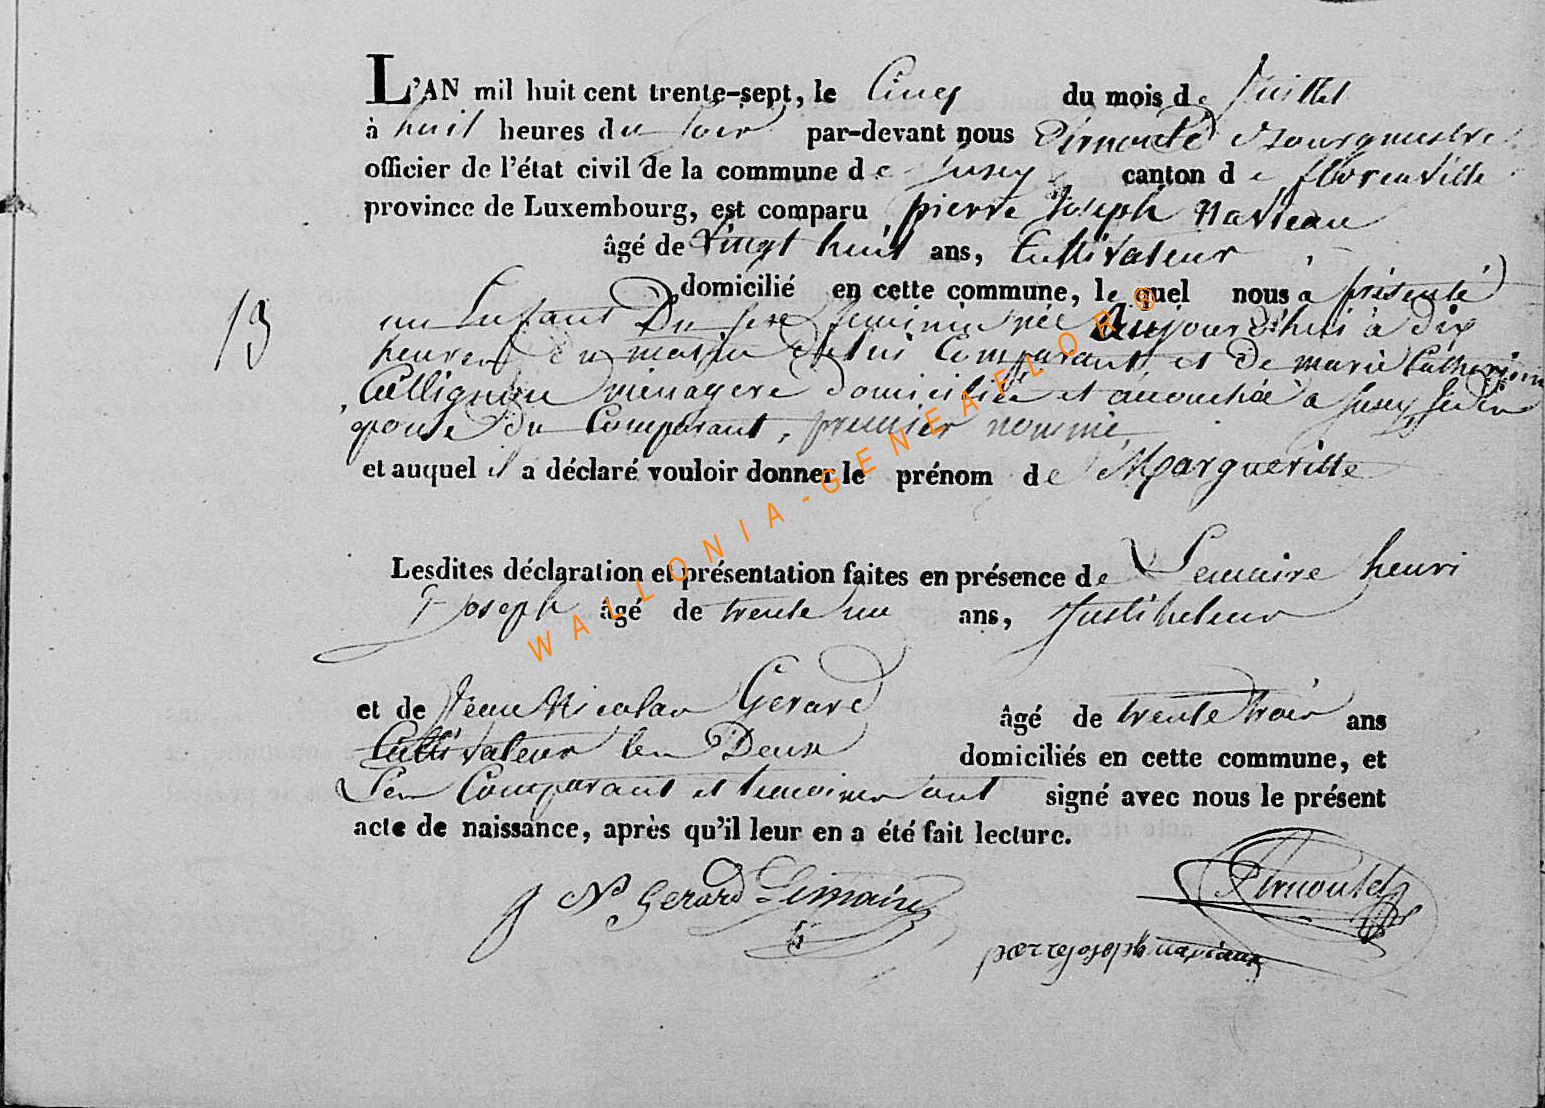 L'AN mil huit cent trente-sept, le Cinq du mois de Juillet
à huit heures du soir par-devant nous Pirmoulé Bourgmestre
officier de l'état civil de la commune de Jusey canton de florenville
province de Luxembourg, est comparu pierre Joseph Naviau
âgé de Vingt huit ans, Cultivateur
domicilié en cette commune, lequel nous a présenté
13
un Enfant Du sexe feminin née Aujourd'hui à dix
heures du matin de lui Comparant et de marie Catherine
Collignon ménagère domiciliée et accouchée à Jusey
epouse du Comparant, premier nommé,
et auquel il a déclaré vouloir donner le prénom de Margueritte
Lesdites déclaration et présentation faites en présence de Lemaire henri
Joseph âgé de trente un ans, Instituteur
et de Jean Nicolas Gerard âgé de trente trois ans
Cultivateur les Deux domiciliés en cette commune, et
Les Comparant et temoins ont signé avec nous le présent
acte de naissance, après qu'il leur en a été fait lecture.
J N Gerard Lemaire
pierre joseph naviaux
WALLONIA-GENEAFLOR®